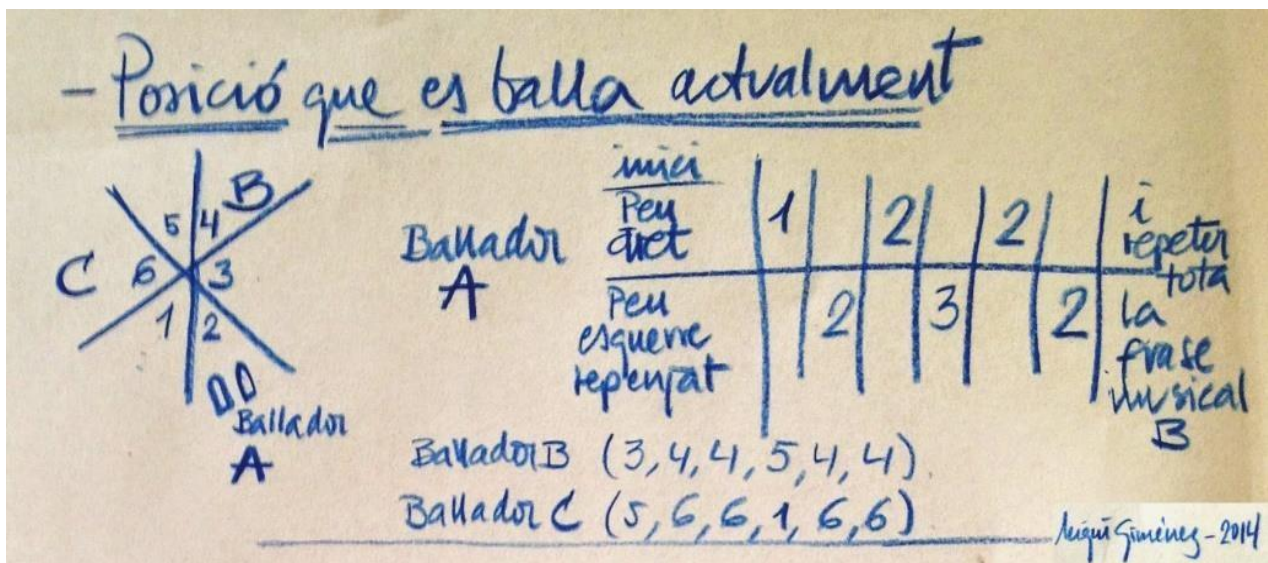 - Posició que es balla actualment
B
5 4
C 6 3
1 2
Ballador
A
Ballador
A
inici
Peu
dret
1 2 2
i
repetir
tota
Peu
esquerre
repenjat
2 3 2
la
frase
musical
B
Ballador B (3,4,4,5,4,4).
Ballador C (5,6,6,1,6,6)
Giménez - 2014